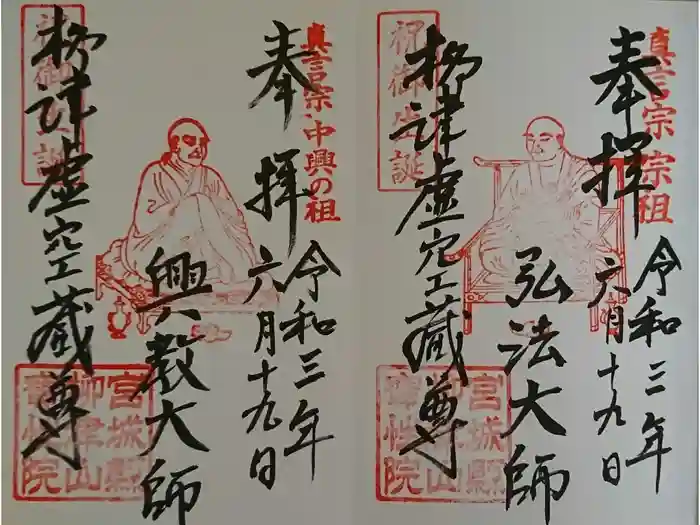 真言宗宗祖
奉拝
令和三年
六月十九日
弘法大師
柳津虚空蔵尊
祝御生誕
宮城縣
柳津山
寳性院
真言宗中興の祖
奉拝
令和三年
六月十九日
興教大師
柳津虚空蔵尊
祝御生誕
宮城縣
柳津山
寳性院